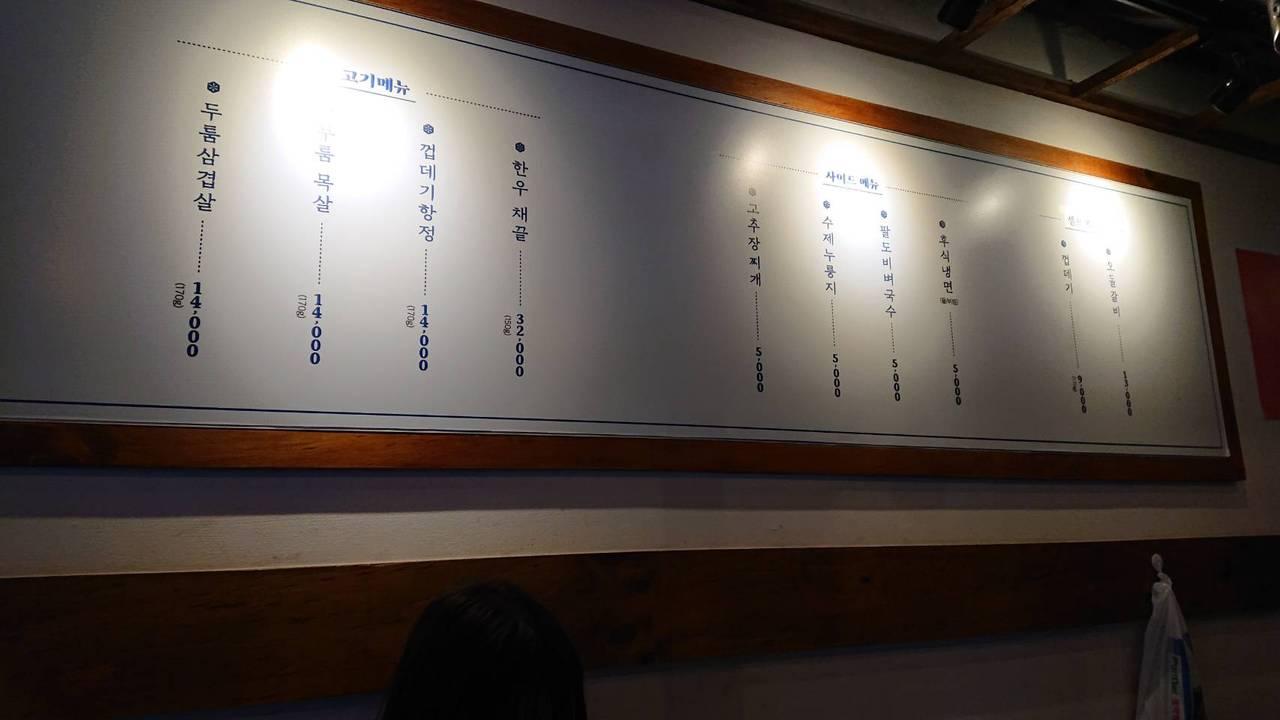 고기메뉴
두툼삼겹살
14,000
(170g)
두툼 목살
14,000
(170g)
껍데기항정
14,000
(170g)
한우 채끝
32,000
(150g)
사이드 메뉴
고추장찌개
5,000
수제누룽지
5,000
팔도비벼국수
5,000
후식냉면
5,000
껍데기
9,000
오돌갈비
13,000